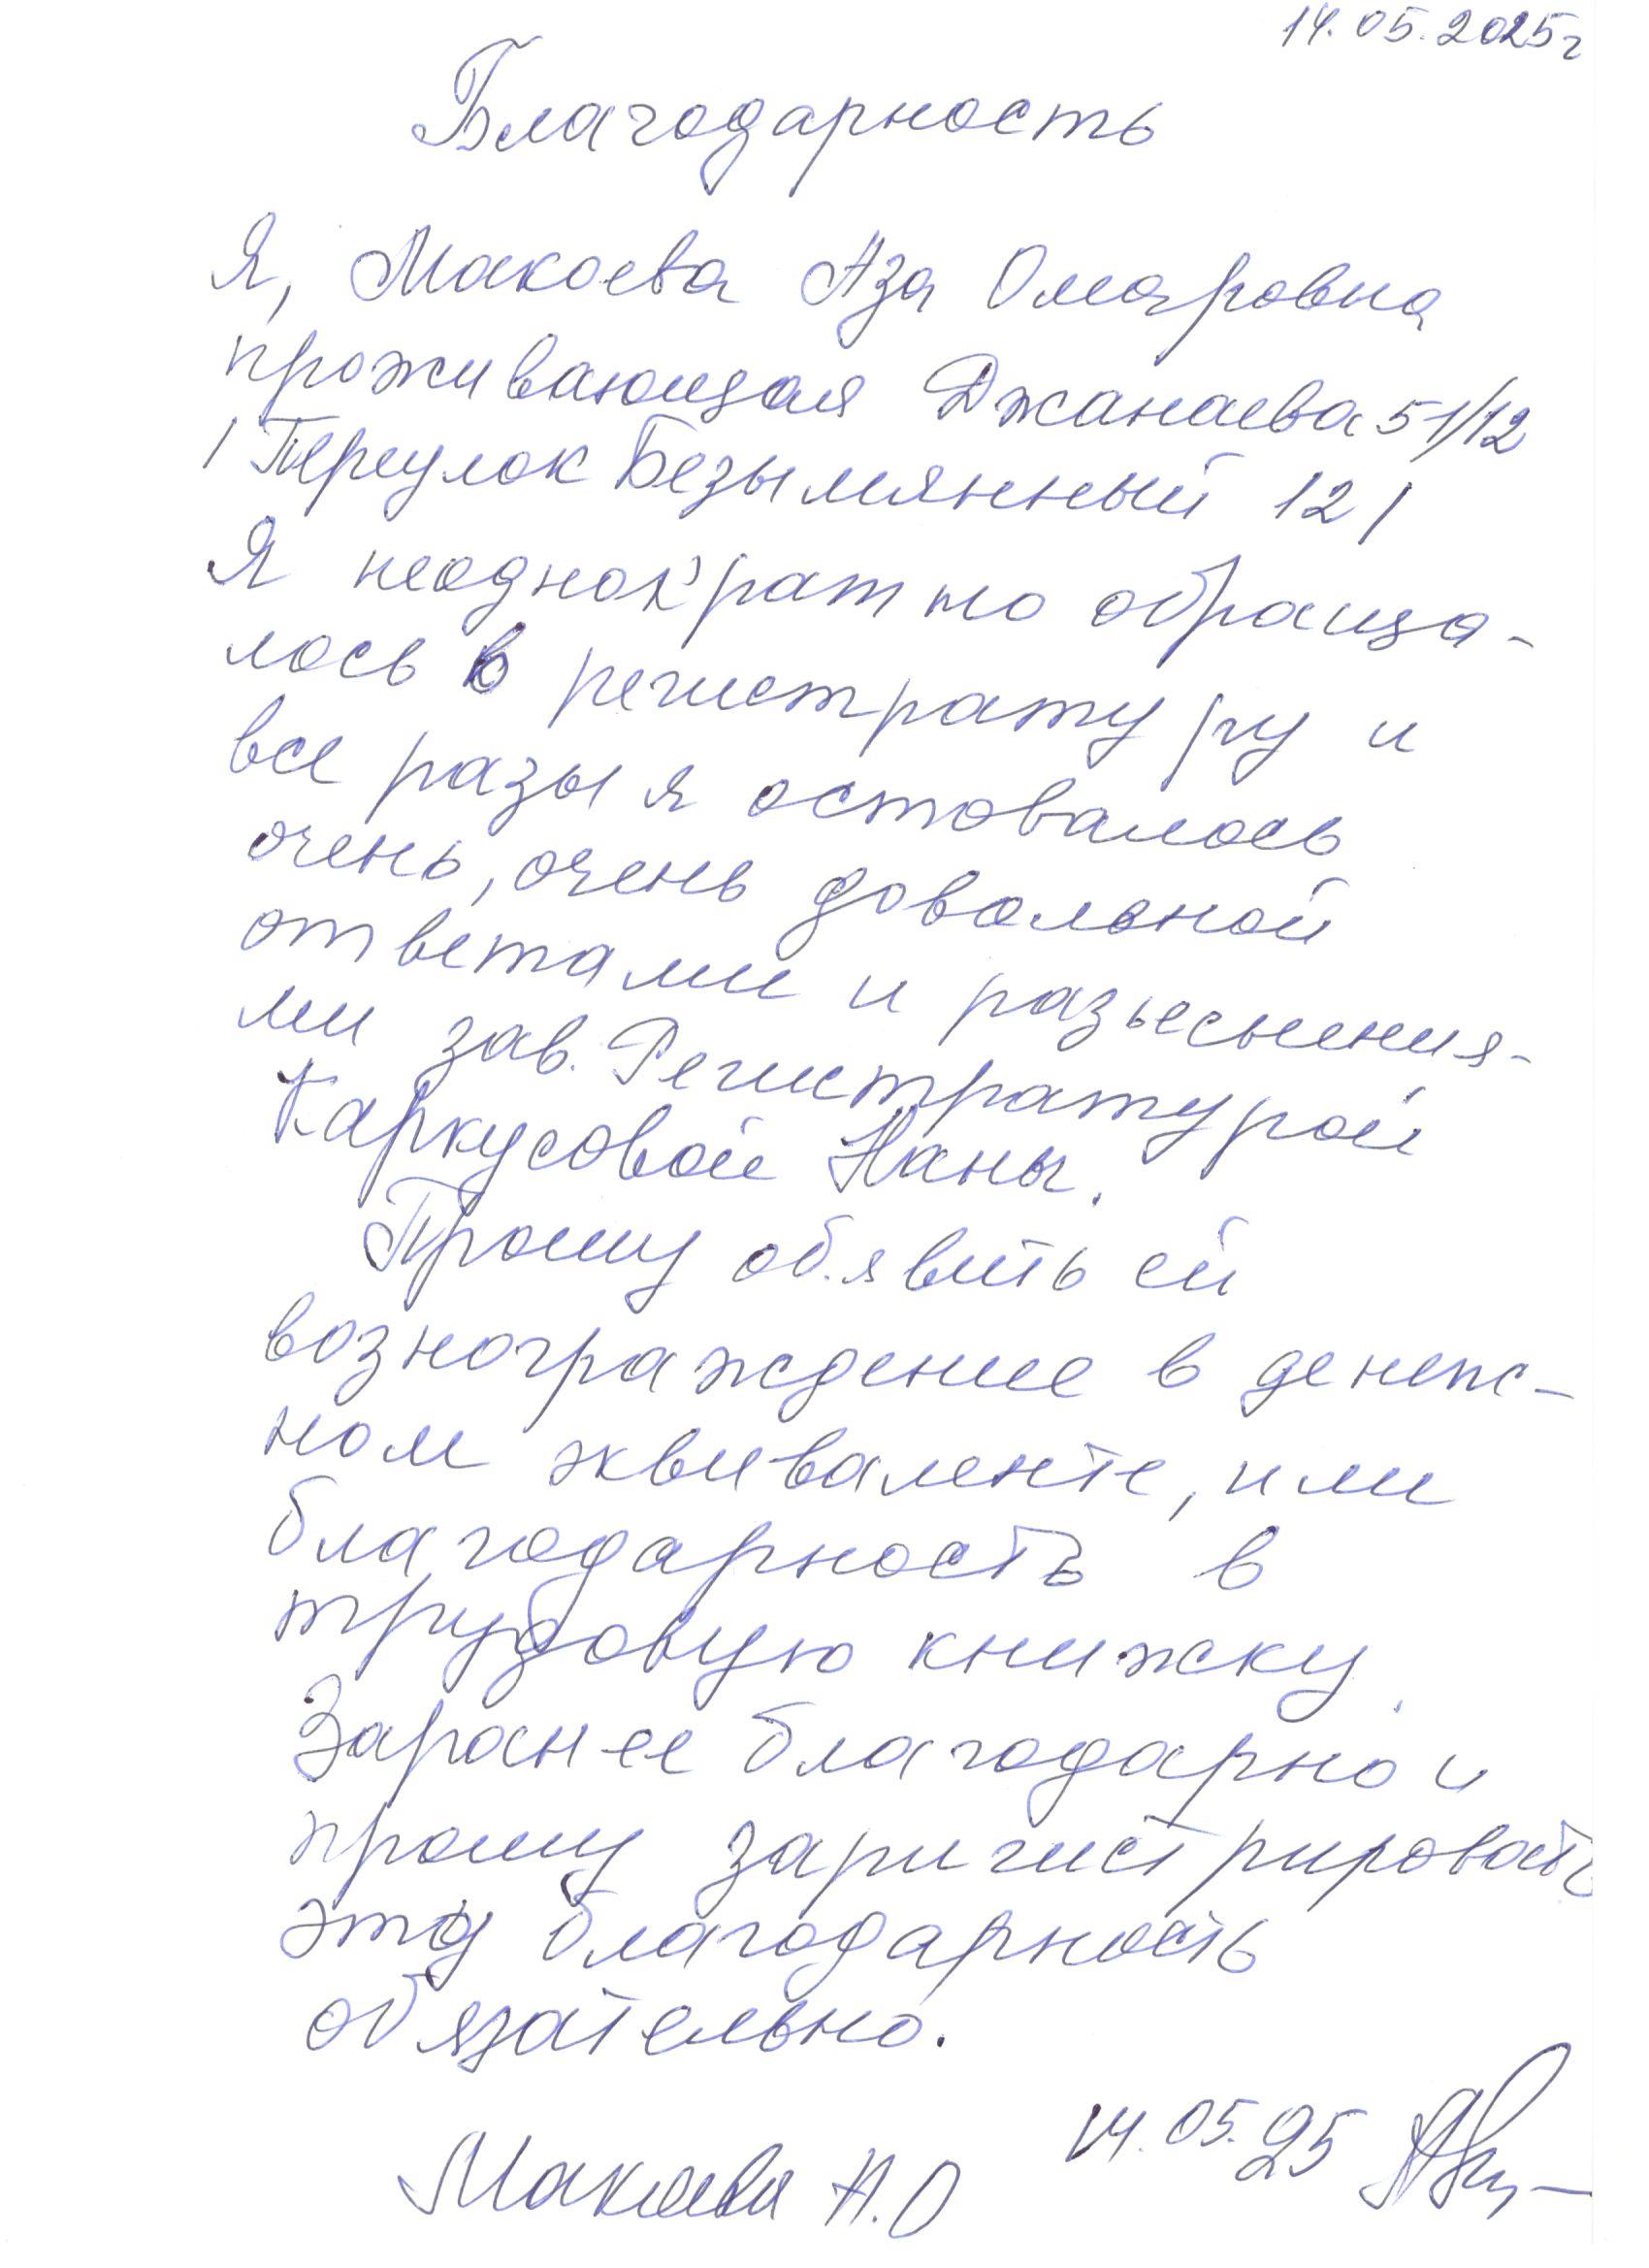 14.05.2025г
Благодарность
Я, Макоева Аза Омаровна
проживающая Джанаева 51/12
/ Переулок Безымянный 12 /
Я неоднократно обраща-
лось в регистратуру и
все разы я оставалось
очень, очень довольной
ответами и разьеснения-
ми зав. Регистратурой
Каркусовой Наны.
Прошу обявить ей
вознограждение в денеж-
ном эквиваленте, или
благодарность в
трудовую книжку.
Заранее благодарно и
прошу заригистрировать
эту благодарность
обязательно.
14.05.25
Макоева А.О